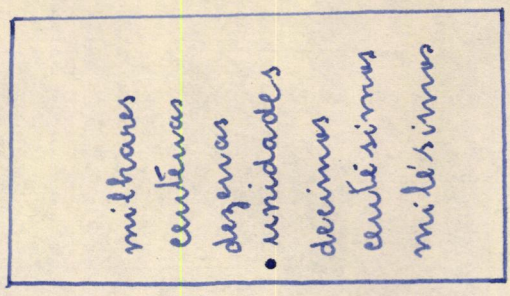 milhares
centenas
dezenas
unidades
decimos
centésimos
milésimos